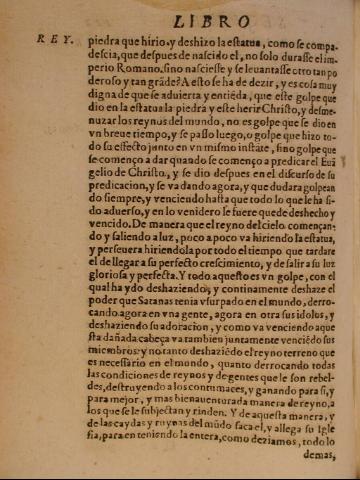 LIBRO
REY.
piedra que hirio, y deshizo la estatua, como se compa-
descia, que despues de nascido el, no solo durasse el im-
perio Romano, sino nasciesse y se leuantasse otro tan po
deroso y tan grãde? A esto se ha de dezir, y es cosa muy
digna de que se aduierta y entiẽda, que este golpe que
dio en la estatua la piedra y este herir Christo, y desme-
nuzar los reynos del mundo, no es golpe que se dio en
vn breue tiempo, y se passo luego, o golpe que hizo to-
do su effecto junto en vn mismo instãte, sino golpe que
se començo a dar quando se começo a predicar el Euã
gelio de Christo, y se dio despues en el discurso de su
predicacion, y se va dando agora, y que dudara golpean
do siempre, y venciendo hasta que todo lo que le ha si-
do aduerso, y en lo venidero le fuere quede deshecho y
vencido. De manera que el reyno del cielo començan-
do y saliendo a luz, poco a poco va hiriendo la estatua,
y perseuera hiriendola por todo el tiempo que tardare
el de llegar a su perfecto crescimiento, y de salir a su luz
gloriosa y perfecta. Y todo aquesto es vn golpe, con el
qual ha ydo deshaziendo, y continamente deshaze el
poder que Satanas tenia vsurpado en el mundo, derro-
cando agora en vna gente, agora en otra sus idolos, y
deshaziendo su adoracion, y como va venciendo aque
sta dañada cabeça va tambien juntamente venciẽdo sus
miembros: y no tanto deshaziẽdo el reyno terreno que
es necessario en el mundo, quanto derrocando todas
las condiciones de reynos y de gentes que le son rebel-
des, destruyendo a los contumaces, y ganando para si, y
para mejor, y mas bienauenturada manera de reyno, a
los que se le subjectan y rinden. Y de aquesta manera, y
de las caydas y ruynas del mũdo saca el, y allega su Igle
sia, para en teniendo la entera, como deziamos, todo lo
demas,